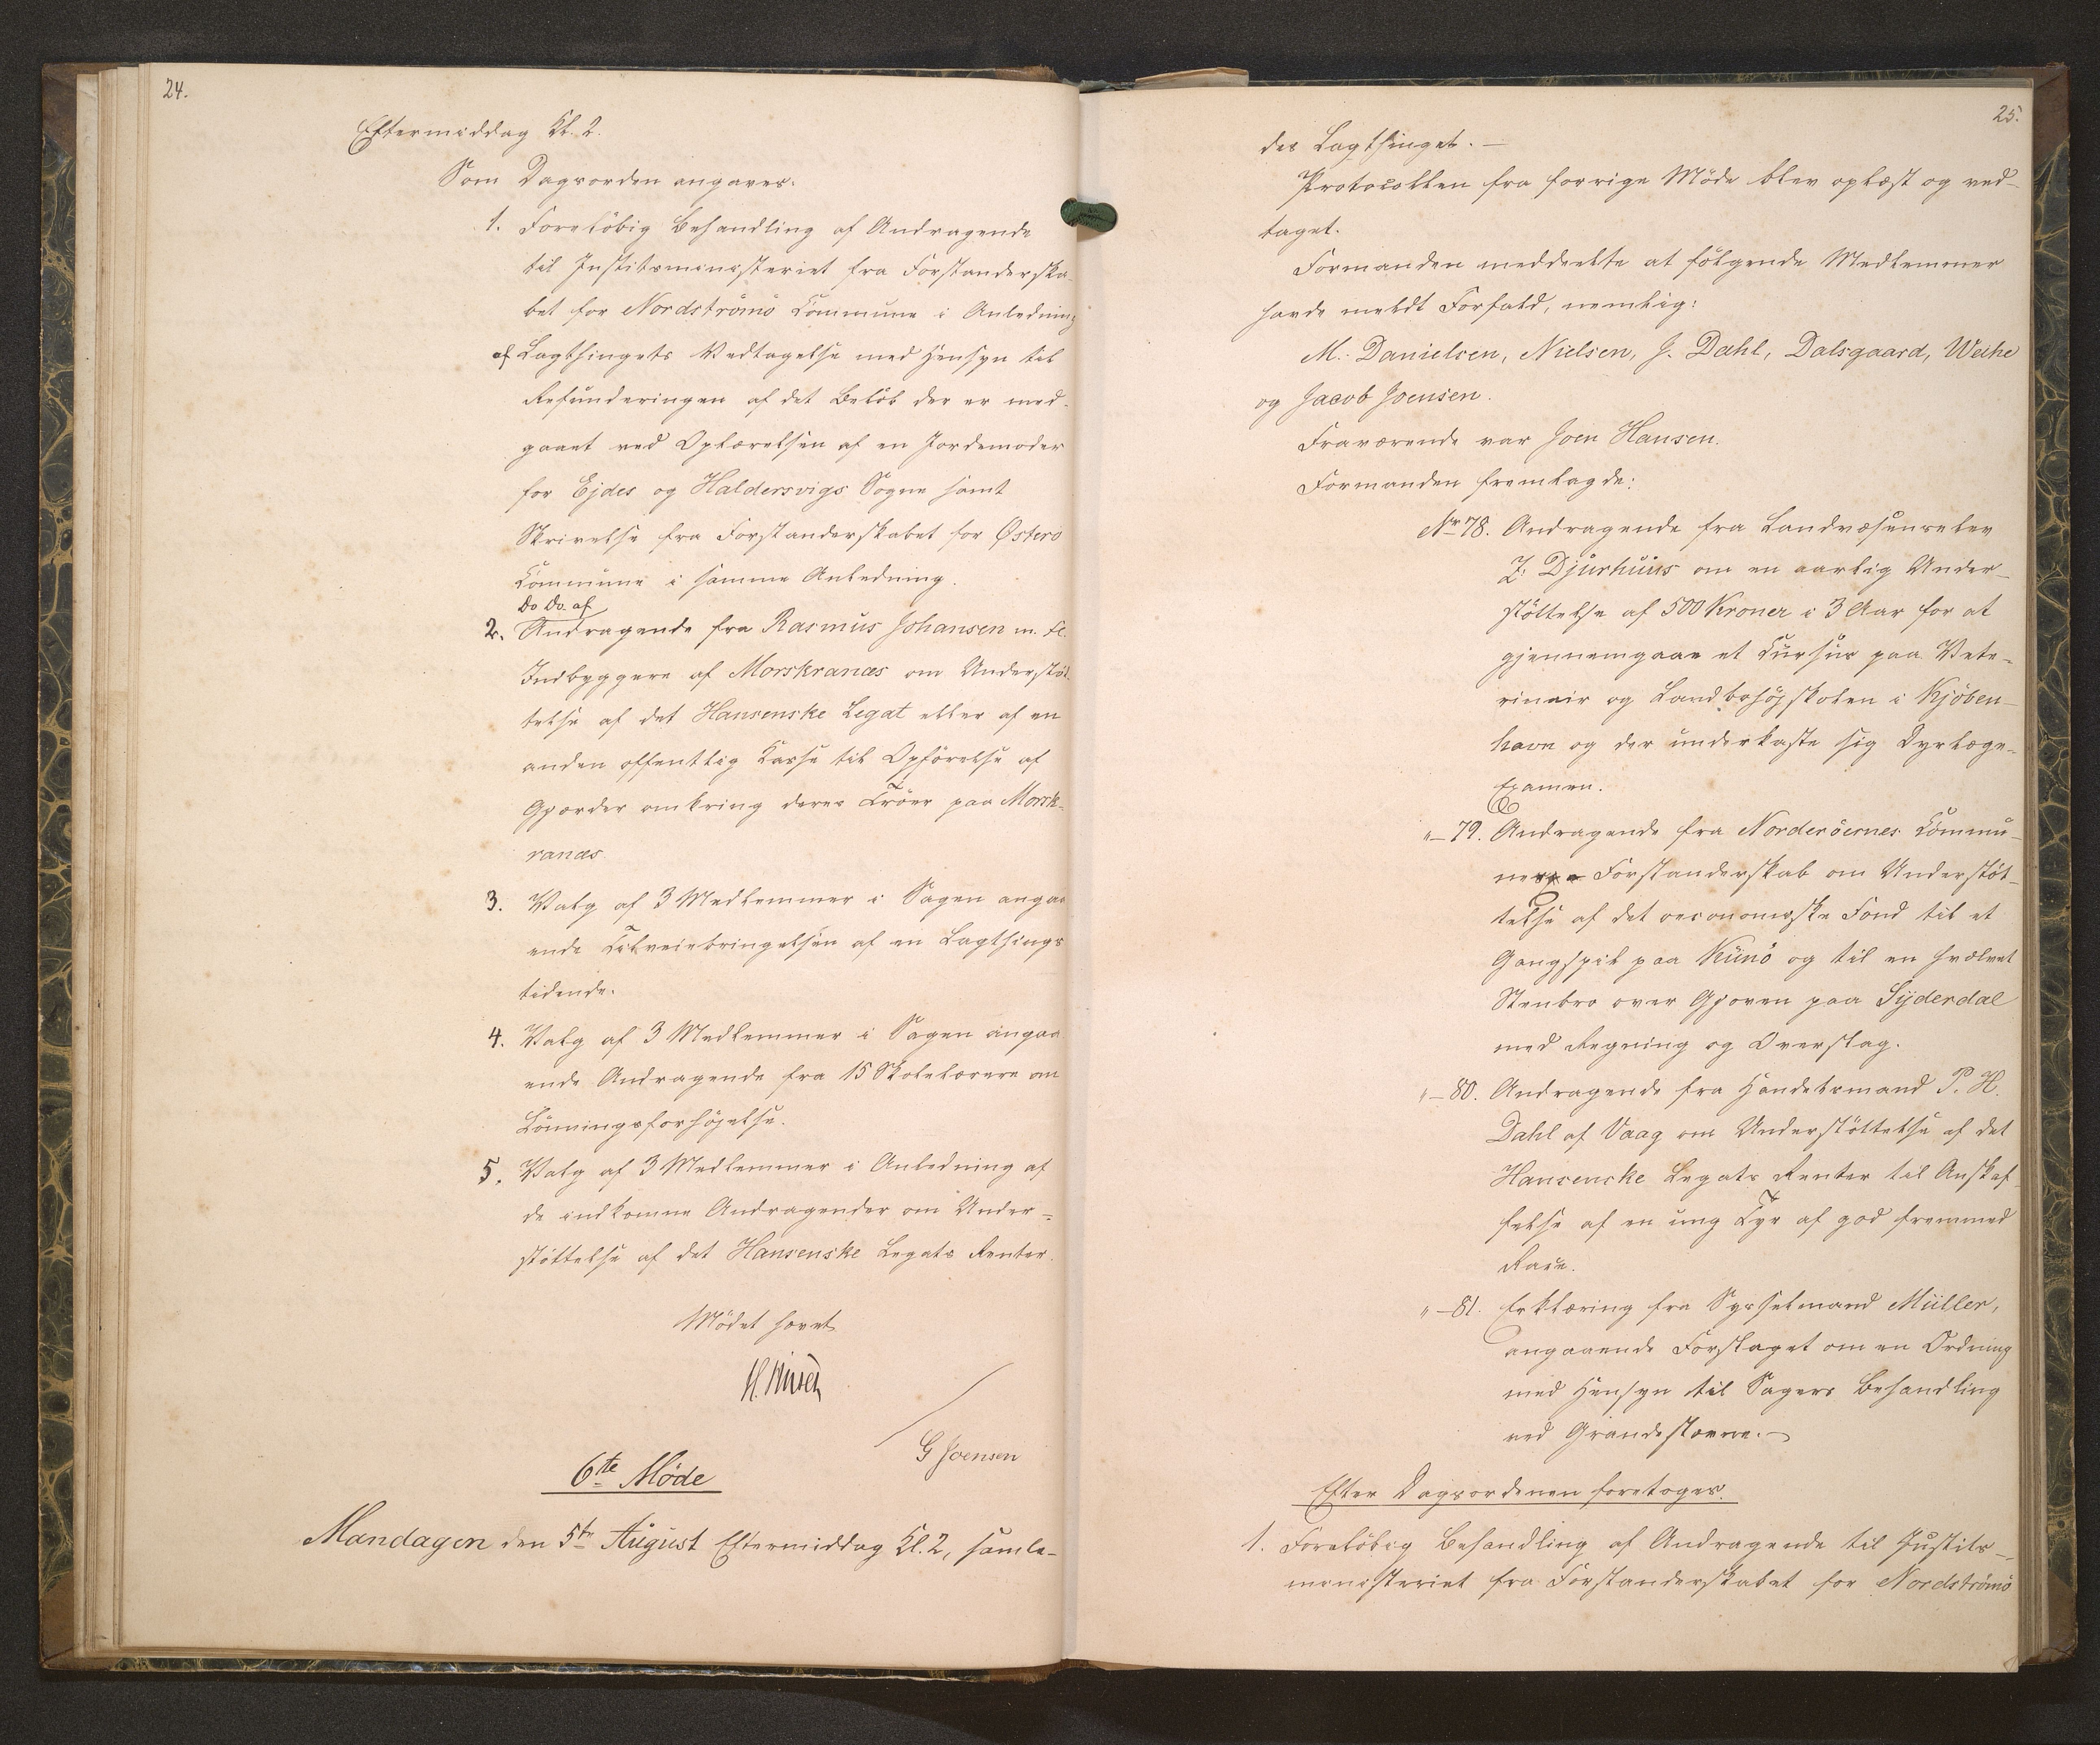 24.
Eftermiddag Kl. 2.
Som Dagsorden angaves:
1. Foreløbig Behandling af Andragende
til Justitsministeriet fra Forstanderska-
bet for Nordströmö Commune i Anledning
af Lagthingets Vedtagelse med Hensyn til
Refunderingen af det Beløb der er med-
gaaet ved Oplærelsen af en Jordemoder
for Ejdes og Haldersvigs Sogne samt
Skrivelse fra Forstanderskabet for Østerö
Commune i samme Anledning.
Do Do af
2. Andragende fra Rasmus Johansen m. fl.
Indbyggere af Morskranæs om Understøt-
telse af det Hansenske Legat eller af en
anden offentlig Kasse til Opførelse af
Gjærder omkring deres Tröer paa Morsk-
ranæs.
3. Valg af 3 Medlemmer i Sagen angaa-
ende Tilveiebringelsen af en Lagthings-
tidende.
4. Valg af 3 Medlemmer i Sagen angaa-
ende Andragende fra 15 Skolelærere om
Lönningsforhöjelse.
5. Valg af 3 Medlemmer i Anledning af
de indkomne Andragender om Under=
støttelse af det Hansenske Legats Renter.
Mödet hævet.
G Joensen
6te Möde
Mandagen den 5te August Eftermiddag Kl. 2, samle-
25.
des Lagthinget. —
Protocollen fra forrige Möde blev oplæst og ved-
taget.
Formanden meddeelte at fölgende Medlemmer
havde meldt Forfald, nemlig:
M. Danielsen, Nielsen, J. Dahl, Dalsgaard, Weihe
og Jacob Joensen.
Fraværende var Joen Hansen.
Formanden fremlagde:
Nr 78. Andragende fra Landvæsenselev
Z. Djurhuus om en aarlig Under-
støttelse af 500 Kroner i 3 Aar for at
gjennemgaae et Cursus paa Vete-
rinair og Landbohöjskolen i Kjöben-
havn og der underkaste sig Dyrlæge-
Examen.
" — 79. Andragende fra Norderöernes Commu-
nes Forstanderskab om Understöt-
telse af det oeconomiske Fond til et
Gangspil paa Kunö og til en hvælvet
Stenbro over Gjoven paa Syderdal
med Tegning og Overslag.
" — 80. Andragende fra Handelsmand P. H.
Dahl af Vaag om Understöttelse af det
Hansenske Legats Renter til Anskaf-
felse af en ung Tyr af god fremmed
Race.
" — 81. Erklæring fra Sysselmand Müller,
angaaende Forslaget om en Ordning
med Hensyn til Sagers Behandling
ved Grandestævne. —
Efter Dagsordenen foretoges.
1. Foreløbig Behandling af Andragende til Justits-
ministeriet fra Forstanderskabet for Nordströmö